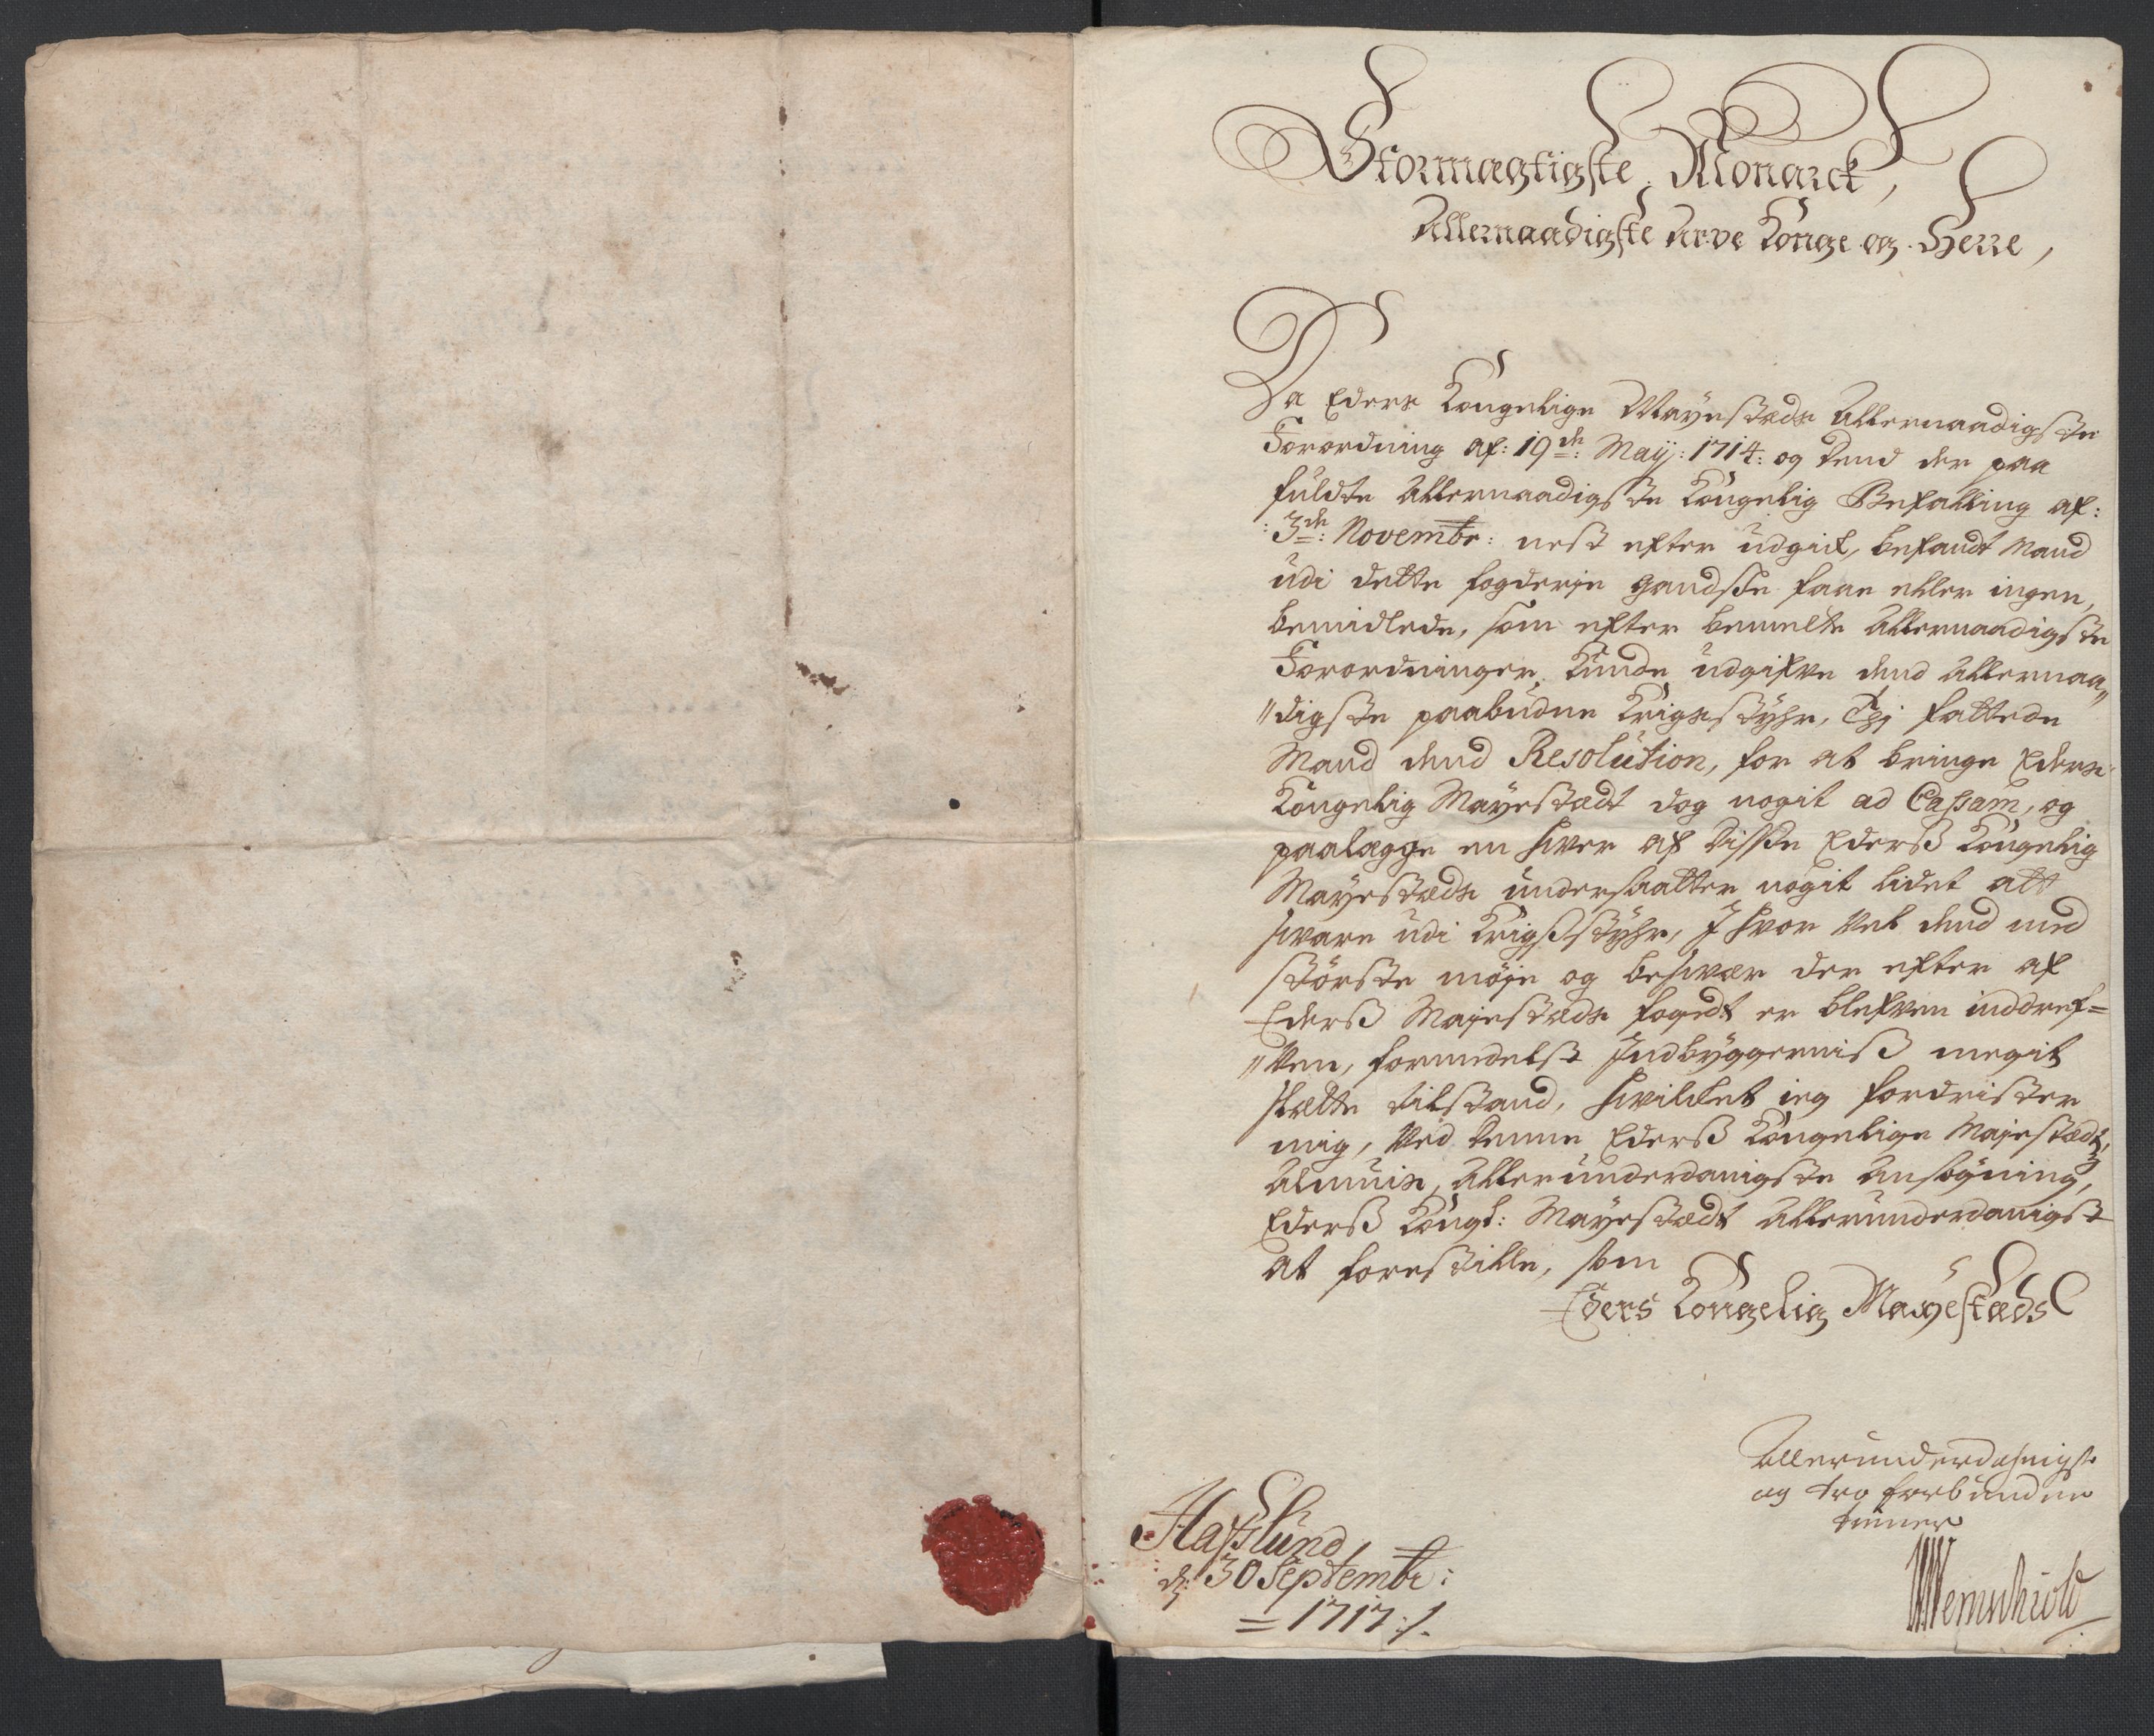 Stormægtigste Monarck,
Allernaadigste Arve Konge og Herre,
Da Eders Kongelige Mayestæds Allernaadigste
Forordning af: 19de: Maij: 1714: og dend der paa
fuldte Allernaadigste Kongelig Befalling af:
:3de: Novembr: nest efter udgick, befandt Mand
udi dette fogderje gandske faae eller ingen,
bemidlede, som efter bemelte Allernaadigste
Forordninger, kunde udgifve dend Allernaa„
„digste paabudne Krigsstyhr, Thj fattede
Mand dend Resolution, for at bringe Eders
Kongelig Mayestædt dog nogit ad Cassam, og
paalægge en hver af disse Ederß Kongelig
Mayestæds undersaatter nogit lidet att
svare udi Krigßstyhr, J hvor vel dend med
største møje og besvær der efter af
Ederß Majestæds fogedt er blefven inddref=
„ven, formedelst Jndbyggerniß megit
slætte tilstand, hvilcket ieg fordrister
mig, ved denne Ederß Kongelige Majestædtz
Almuis, Allerunderdanigste Ansøgning,
Ederß Kongl: Mayestædt Allerunderdanigst
at forestille, som
Eders Kongelig Mayestæds
Allerunderdahnigste
og tro forbundne
tiener
Hafslund,
d: 30 Septembr:
= 1717:/.